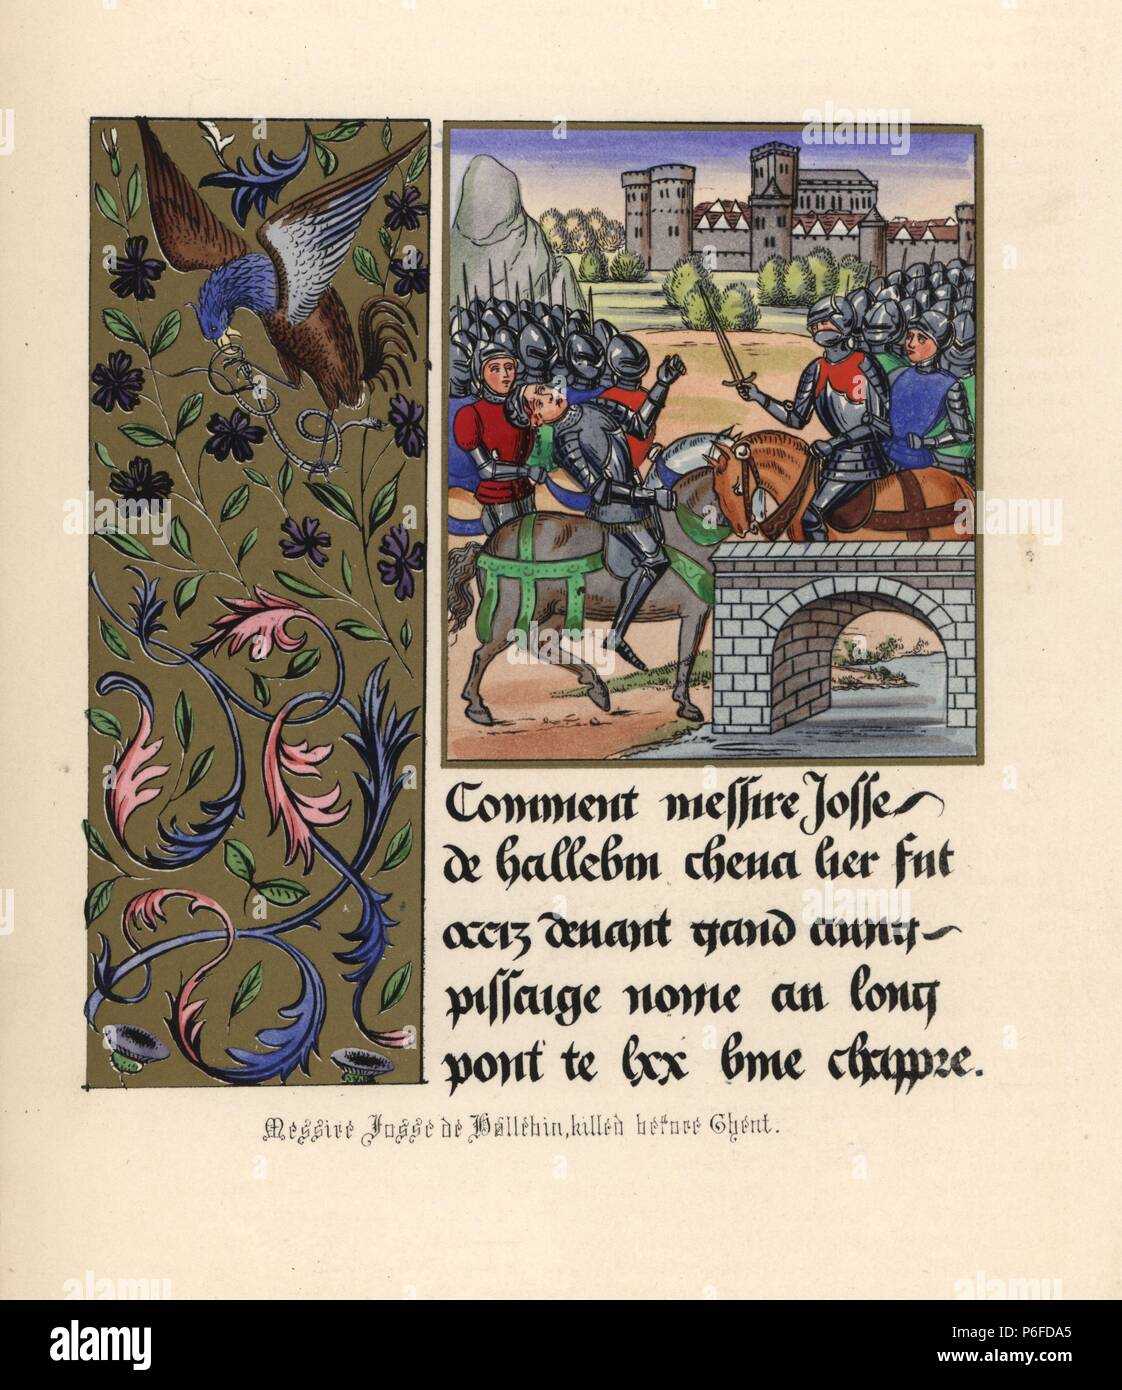 Comment messire Josse
de hallebin cheualier fut
occiz deuant gand aung
passaige nome au long
pont te lxx bme chappre.
Messire Josse de Hallebin, killed before Ghent.
alamy
alamy stock photo
P6FDA5
www.alamy.com